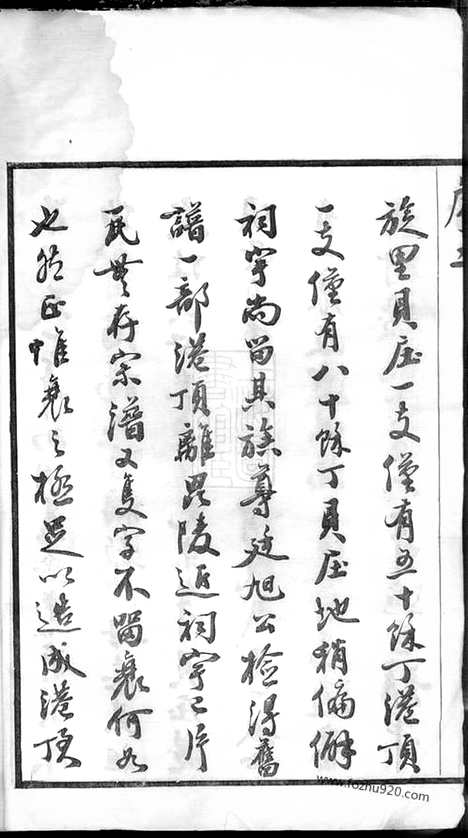 族里貝庄一支僅有五十餘丁港頂
一支僅有八十餘丁貝庄地稍偏僻
祠宇尚留其族尊廷旭公檢得舊
譜一部港頂離毘陵近祠宇已片
瓦無存宗譜又隻字不留衰何如
也然正惟衰之極足以造成港頂
www.fozhu920.com